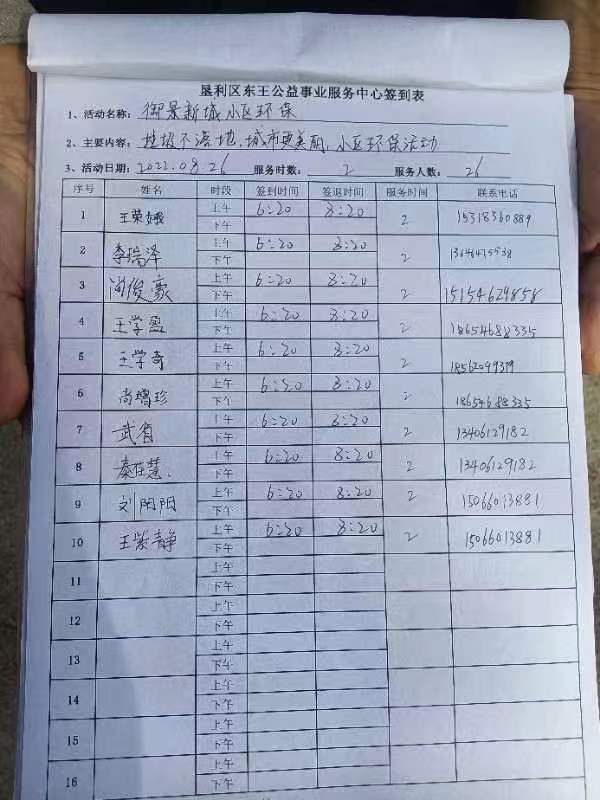 垦利区东王公益事业服务中心签到表
1、活动名称：御景新城小区环保
2、主要内容：垃圾不落地，城市更美丽，小区环保活动
3、活动日期：2022.08.26 服务时数：2 服务人数：26
序号 姓名 时段 签到时间 签退时间 服务时间 联系电话
1 王荣娥 上午 6:20 8:20 2 15318360889
下午
2 李瑞泽 上午 6:20 8:20 2
下午
3 俊豪 上午 6:20 8:20 2 15154629858
下午
4 王学盈 上午 6:20 8:20 2 18654688335
下午
5 王学奇 上午 6:20 8:20 2
下午
6 尚增珍 上午 6:20 8:20 2 18654688335
下午
7 武 上午 6:20 8:20 2 13406129182
下午
8 秦在慧 上午 6:20 8:20 2 13406129182
下午
9 刘阳阳 上午 6:20 8:20 2 15066013881
下午
10 王紫静 上午 6:20 8:20 2 15066013881
下午
11 上午
下午
12 上午
下午
13 上午
下午
14 上午
下午
15 上午
下午
16 上午
下午